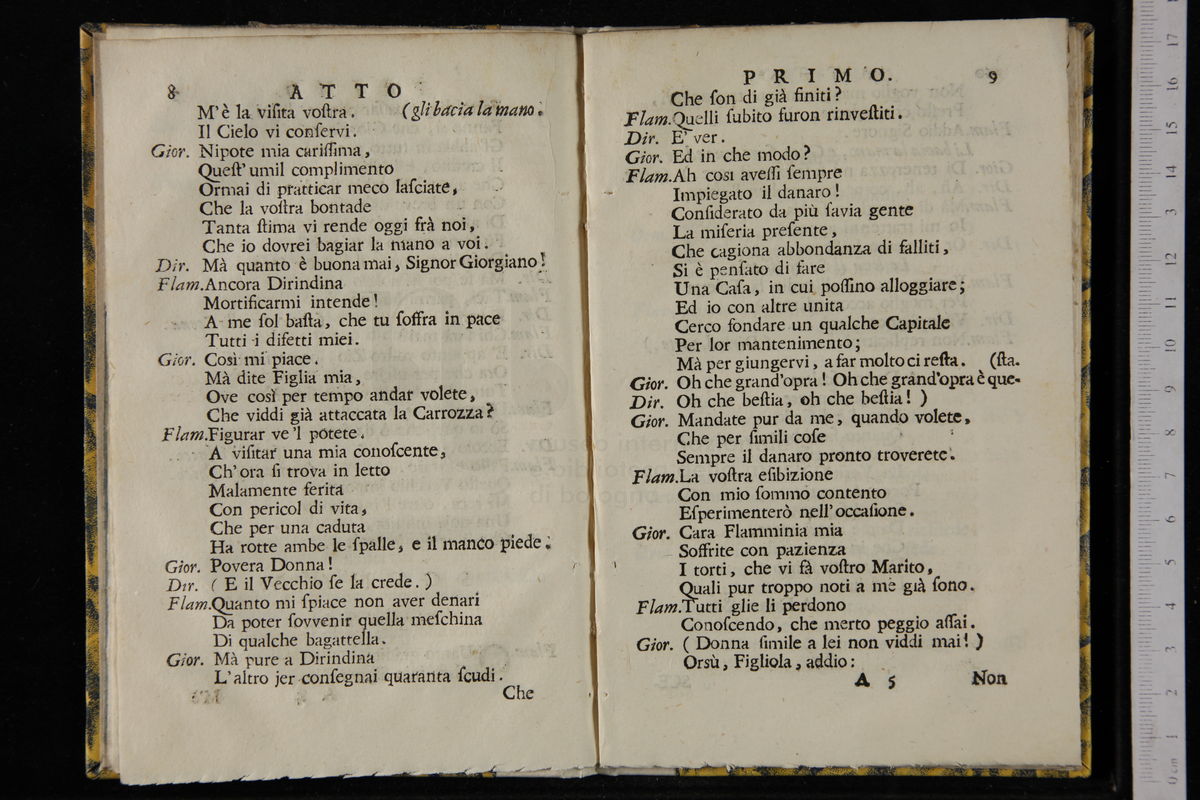 8 ATTO
M'è la visita vostra. (gli bacia la mano.
Il Cielo vi conservi.
Gior. Nipote mia carissima,
Quest' umil complimento
Ormai di pratticar meco lasciate,
Che la vostra bontade
Tanta stima vi rende oggi frà noi,
Che io dovrei bagiar la mano a voi.
Dir. Mà quanto è buona mai, Signor Giorgiano!
Flam. Ancora Dirindina
Mortificarmi intende!
A me sol basta, che tu soffra in pace
Tutti i difetti miei.
Gior. Così mi piace.
Mà dite Figlia mia,
Ove così per tempo andar volete,
Che viddi già attaccata la Carrozza?
Flam. Figurar ve 'l potete.
A visitar una mia conoscente,
Ch' ora si trova in letto
Malamente ferita
Con pericol di vita,
Che per una caduta
Ha rotte ambe le spalle, e il manco piede.
Gior. Povera Donna!
Dir. (E il Vecchio se la crede.)
Flam. Quanto mi spiace non aver denari
Da poter sovvenir quella meschina
Di qualche bagattella.
Gior. Mà pure a Dirindina
L'altro jer consegnai quaranta scudi.
Che
PRIMO. 9
Che son di già finiti?
Flam. Quelli subito furon rinvestiti.
Dir. E' ver.
Gior. Ed in che modo?
Flam. Ah così avessi sempre
Impiegato il danaro!
Considerato da più savia gente
La miseria presente,
Che cagiona abbondanza di falliti,
Si è pensato di fare
Una Casa, in cui possino alloggiare;
Ed io con altre unita
Cerco fondare un qualche Capitale
Per lor mantenimento;
Mà per giungervi, a far molto ci resta. (sta.
Gior. Oh che grand'opra! Oh che grand'opra è que-
Dir. Oh che bestia, oh che bestia! )
Gior. Mandate pur da me, quando volete,
Che per simili cose
Sempre il danaro pronto troverete.
Flam. La vostra esibizione
Con mio sommo contento
Esperimenterò nell'occasione.
Gior. Cara Flamminia mia
Soffrite con pazienza
I torti, che vi fà vostro Marito,
Quali pur troppo noti a me già sono.
Flam. Tutti glie li perdono
Conoscendo, che merto peggio assai.
Gior. (Donna simile a lei non viddi mai!)
Orsù, Figliola, addio:
A 5 Non